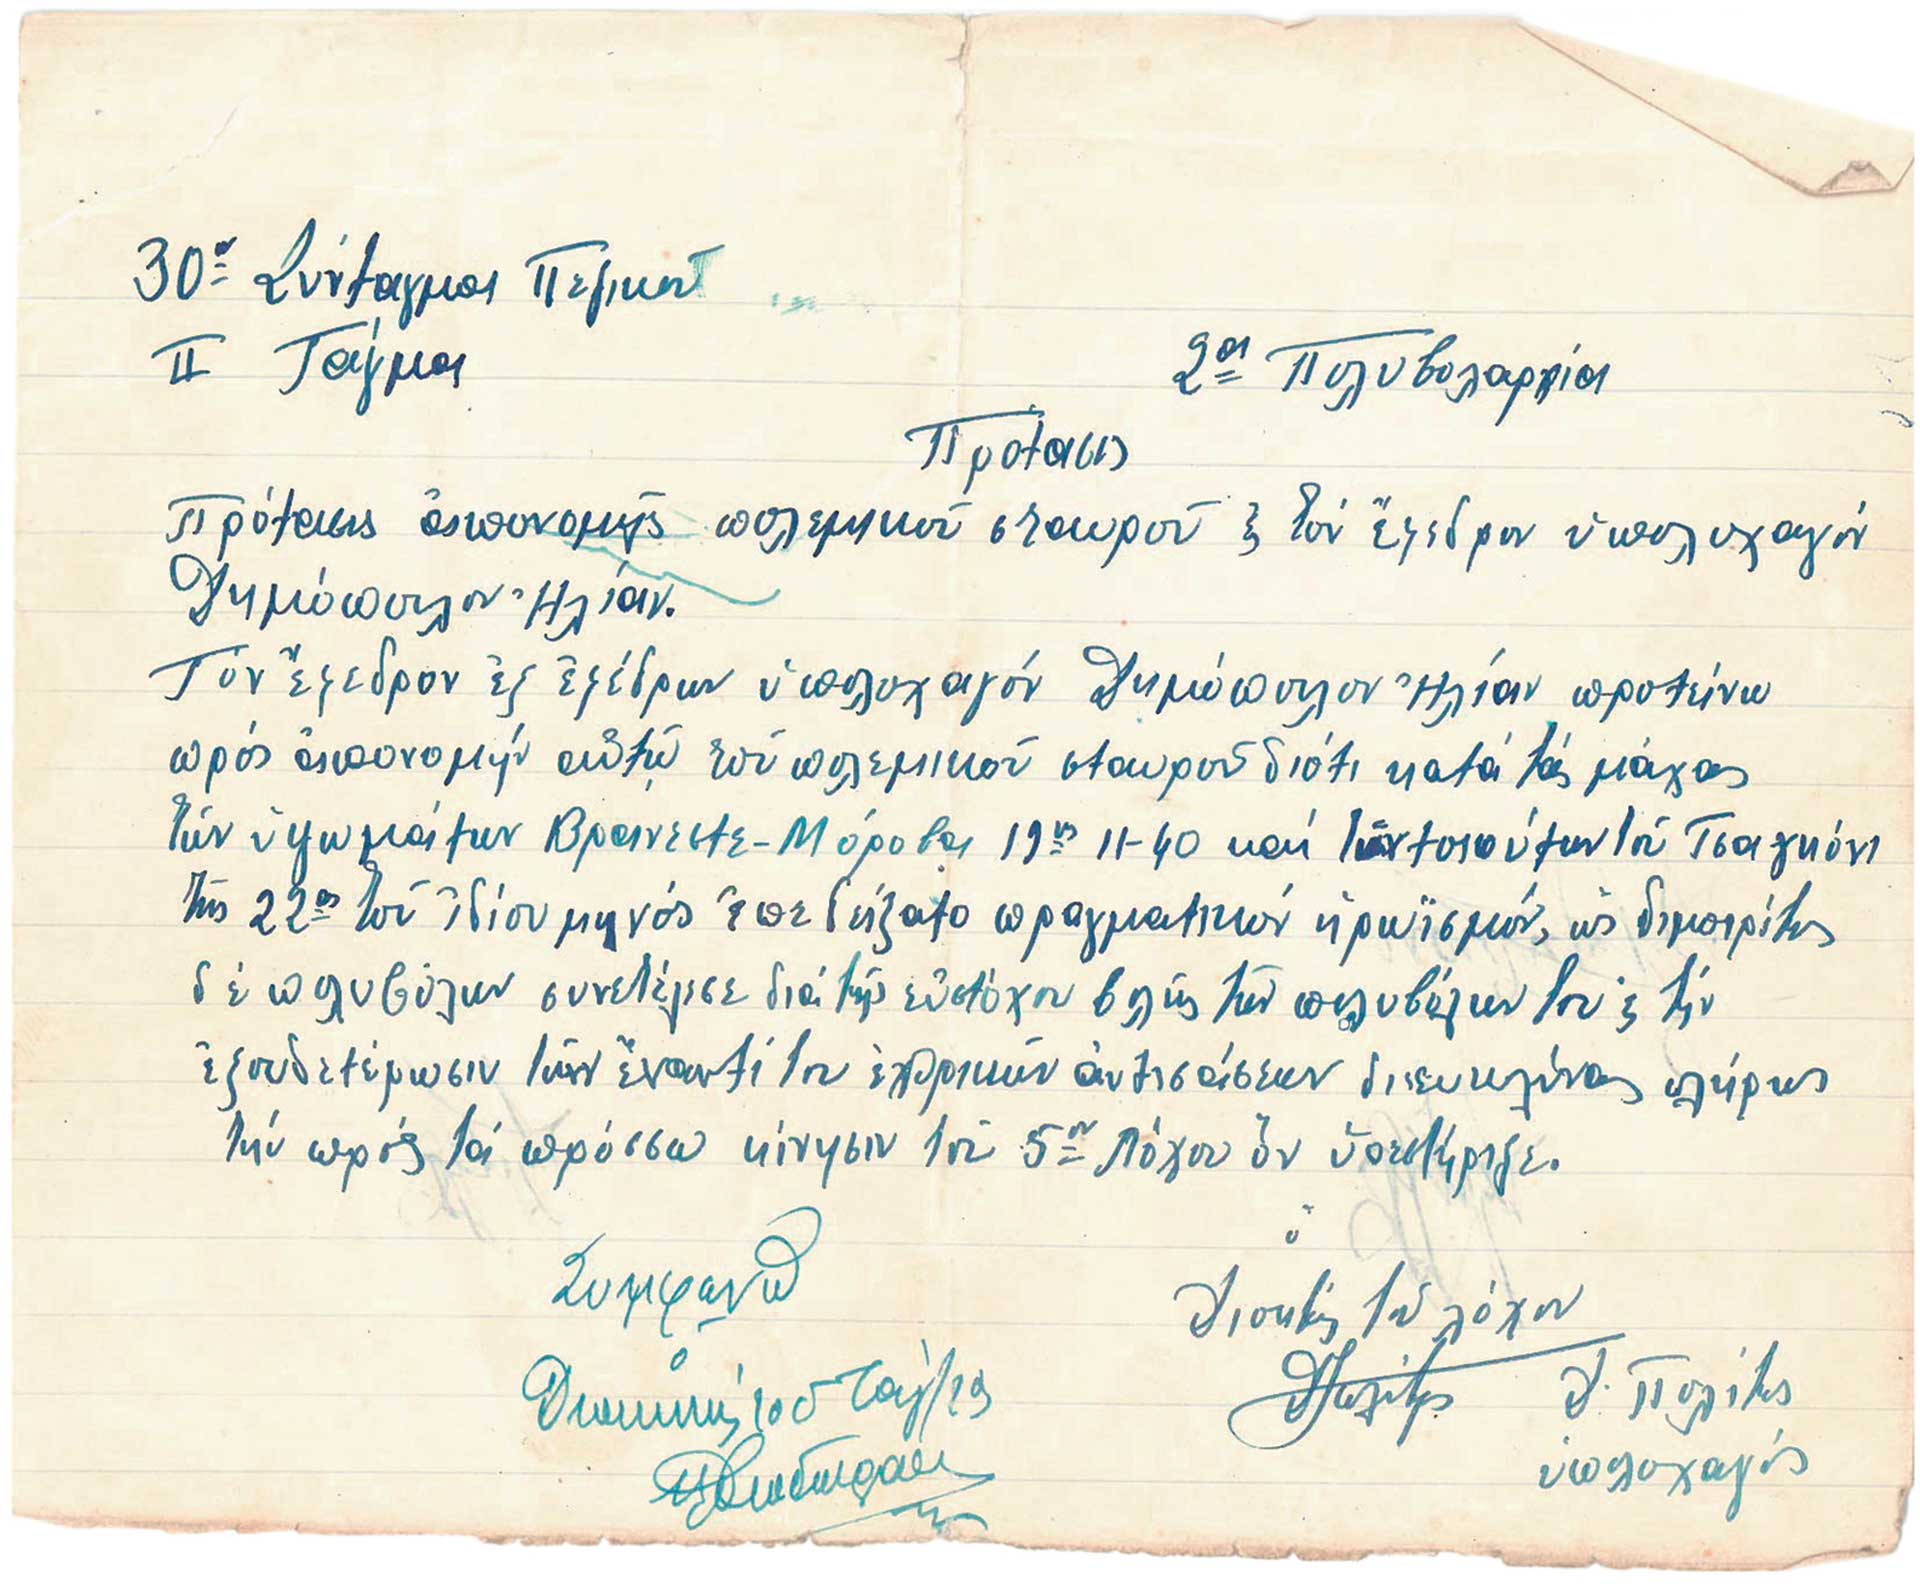 30ον Σύνταγμα Πεζικοῦ
ΙΙ Τάγμα
2α Πολυβολαρχία
Πρότασις
Πρότασις ἀπονομῆς πολεμικοῦ σταυροῦ ς τὸν ἔφεδρον ὑπολοχαγόν
Δημόπουλον Ἠλίαν.
Τόν ἔφεδρον ἐξ ἐφέδρων ὑπολοχαγόν Δημόπουλον Ἠλίαν προτείνω
πρός ἀπονομήν αὐτῷ τοῦ πολεμικοῦ σταυροῦ διότι κατά τάς μάχας
τῶν ὑψωμάτων Βράνεστε-Μόροβα 19ης 11-40 καί τῶν τοιούτων τοῦ Τσαγκόνι
τῆς 22ας τοῦ ἰδίου μηνός ἐπεδείξατο πραγματικόν ἡρωϊσμόν, ὡς διμοιρίτης
δέ πολυβόλων συνετέλεσε διά τῆς εὐστόχου βολῆς τῶν πολυβόλων του ς τήν
ἐξουδετέρωσιν τῶν ἔναντί του ἐχθρικῶν ἀντιστάσεων διευκολύνας πλήρως
τήν πρός τά πρόσσω κίνησιν τοῦ 5ου Λόχου ὅν ὑπεστήριξε.
Συμφωνῶ
ὁ
Διοικητής τοῦ Τάγ/τος
ὁ
Διοκτής τοῦ λόχου
Δ. Πολίτης
ὑπολοχαγός